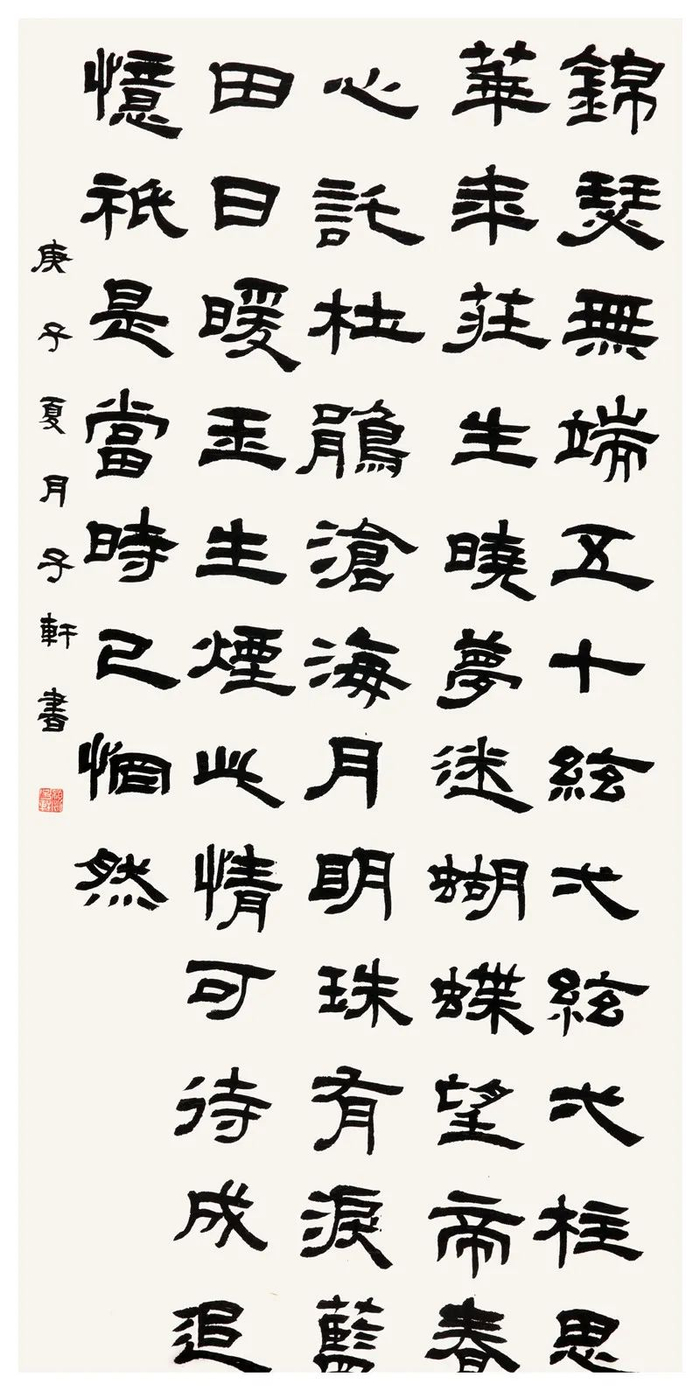 錦瑟無端五十絃弌絃弌柱思
華年莊生曉夢迷蝴蝶望帝春
心託杜鵑滄海月明珠有淚藍
田日暖玉生煙此情可待成追
憶祇是當時已惘然
庚子夏月子軒書